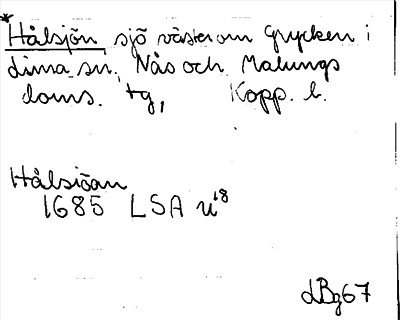 *Hålsjön sjö väster om Grycken i
Lima sn, Nås och Malungs
doms. tg, Kopp. l.
Hålsiöan
1685 LSA u¹⁸
LBg67